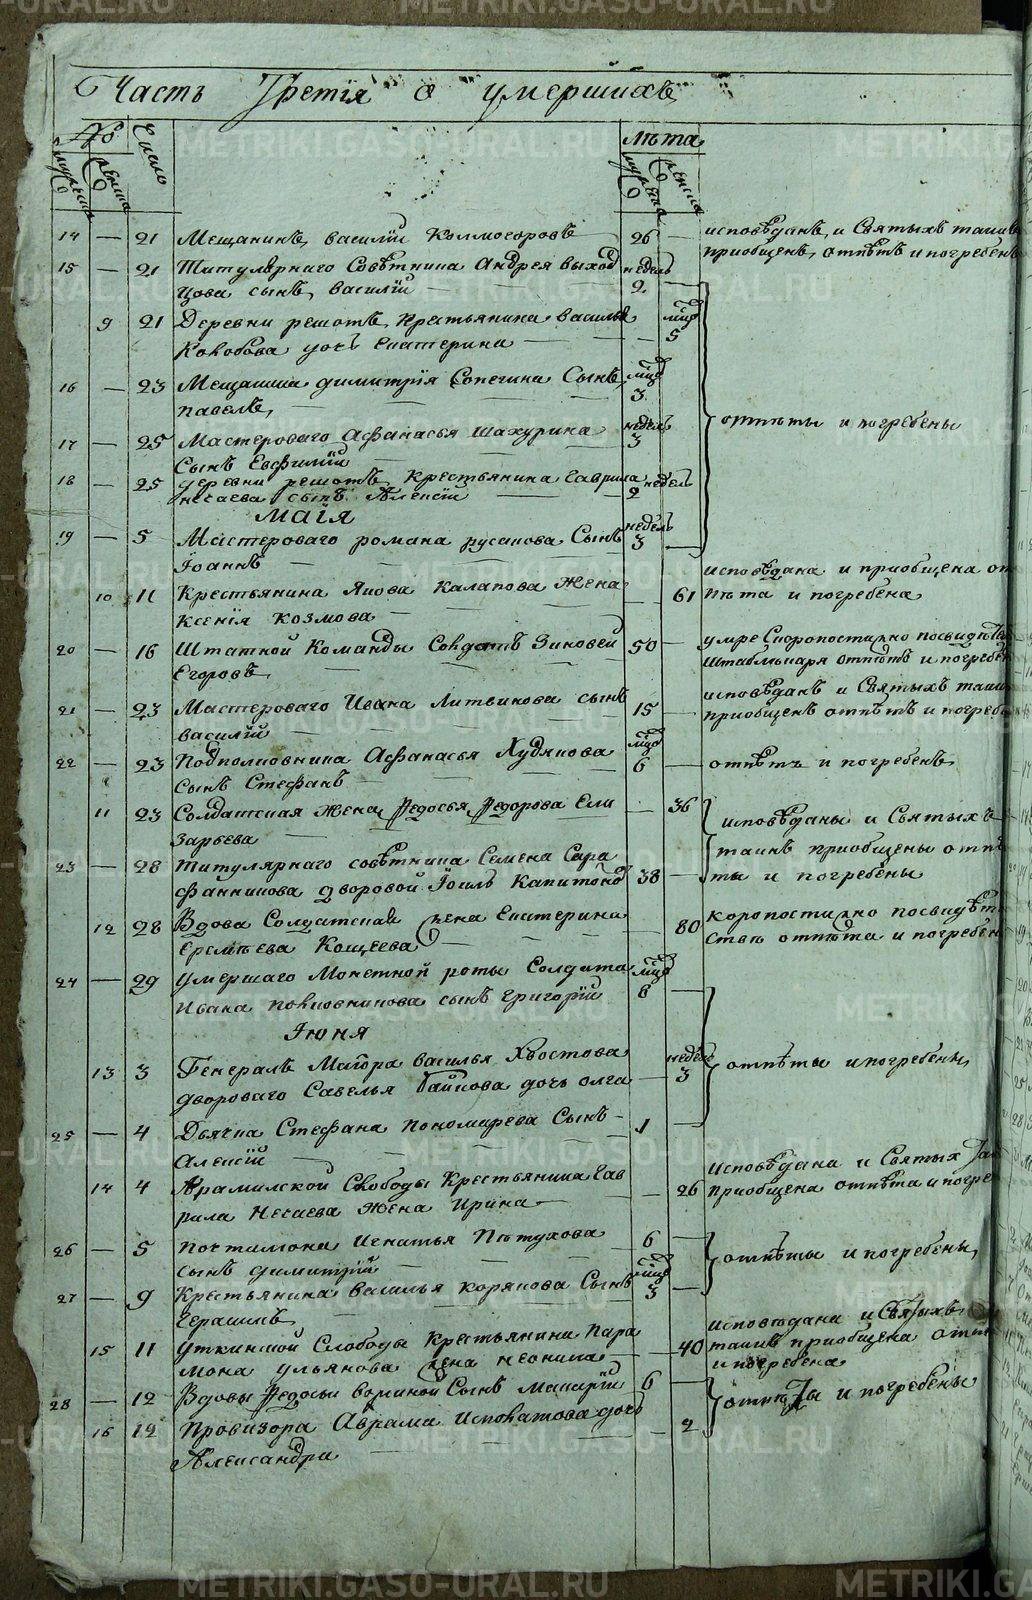 Часть Третія о умершихъ
№ Число лѣта
мужеска женска мужеска женска
14 — 21 Мещанинъ василій Колмогоровъ 26 — исповѣданъ, и Святыхъ таинъ
приобщенъ, отпѣтъ и погребенъ
15 — 21 Титулярнаго Совѣтника Андрея выход недель
цова сынъ, василій — 2
9 21 Деревни решотъ, крестьянина василья мцъ
Коковова дочь Екатерина — — 5
16 — 23 Мещанина димитрія Сопегина Сынъ, мцъ
павелъ, — 3
отпѣты и погребены
17 — 25 Мастероваго Афанасья Шахурина недель
Сынъ Евфимій 3
18 — 25 деревни решотъ, Крестьянина Гаврила недель
нечаева сынъ Алексій 2
маія
19 — 5 Мастероваго романа русинова Сынъ недель
Іоаннъ — 3
исповѣдана и приобщена от
10 11 Крестьянина Якова Калапова Жена — 61 пѣта и погребена
Ксенія козмова
20 — 16 Штатной Команды Солдатъ Зиновей 50 — умре Скоропостижно
Егоровъ, отпѣтъ и погребен
21 — 23 Мастероваго Ивана Литвинова сынъ 15 исповѣданъ и Святыхъ таин
василій — приобщенъ отпѣтъ и погребе
22 — 23 Подполковника Афанасья Худякова мцъ
сынъ Стефанъ 6 — отпѣтъ и погребенъ
11 23 Солдатская Жена Федосья Федорова Ели — 36 исповѣданы и Святыхъ
зарьева —
23 — 28 титулярнаго совѣтника Семена Сара таинъ приобщены отпѣ
фанникова дворовой Іоиль Капитонов 38 — ты и погребены
12 28 Вдова Солдатская жена Екатерина — 80 коропостижно посвидѣт
Еремѣева Кощеева — ствъ отпѣта и погребен
24 — 29 умершаго Монетной роты Солдата мцъ
Ивана половникова сынъ григорій 8 —
Іюня
13 3 Генералъ Маіора василья Хвостова недель
двороваго Савелья байкова дочь олга — 3 отпѣты и погребены
25 — 4 Дьячка Стефана пономарева Сынъ 1 —
Алексій —
14 4 Арамилской Слободы Крестьянина Гав — 26 исповѣдана и Святых Таи
рила Нечаева Жена Ирина — приобщена отпѣта и погре
26 — 5 почталіона Игнатья Пѣтухова 6 —
сынъ димитрій — отпѣты и погребены
27 — 9 Крестьянина василья корякова Сынъ мцъ
Герасимъ 3 —
15 11 уткинской Слободы Крестьянина пара — 40 исповѣдана и Святыхъ
мона ульянова жена неонила — таинъ приобщена отпѣ
и погребена
28 — 12 Вдовы Федосьи Сынъ макарій 6 —
отпѣты и погребены
16 12 Провизора Аврама Исполатова дочь — 2
Александра
METRIKI.GASO-URAL.RU